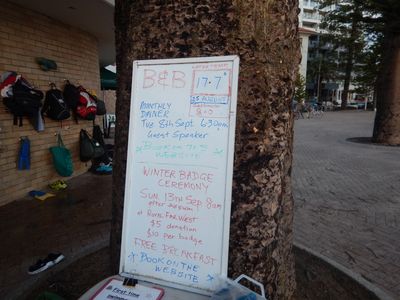 B&B
WATER TEMP
17.7°
MONTHLY
DINNER
25 AUGUST
Tue 8th Sept 6.30pm
Guest Speaker
BOOK ON THE
WEBSITE
WINTER BADGE
CEREMONY
SUN 13TH SEP 8am
after swim
at Royal Far West
$5 donation
$10 per badge
FREE BREAKFAST
BOOK ON THE
WEBSITE
First time